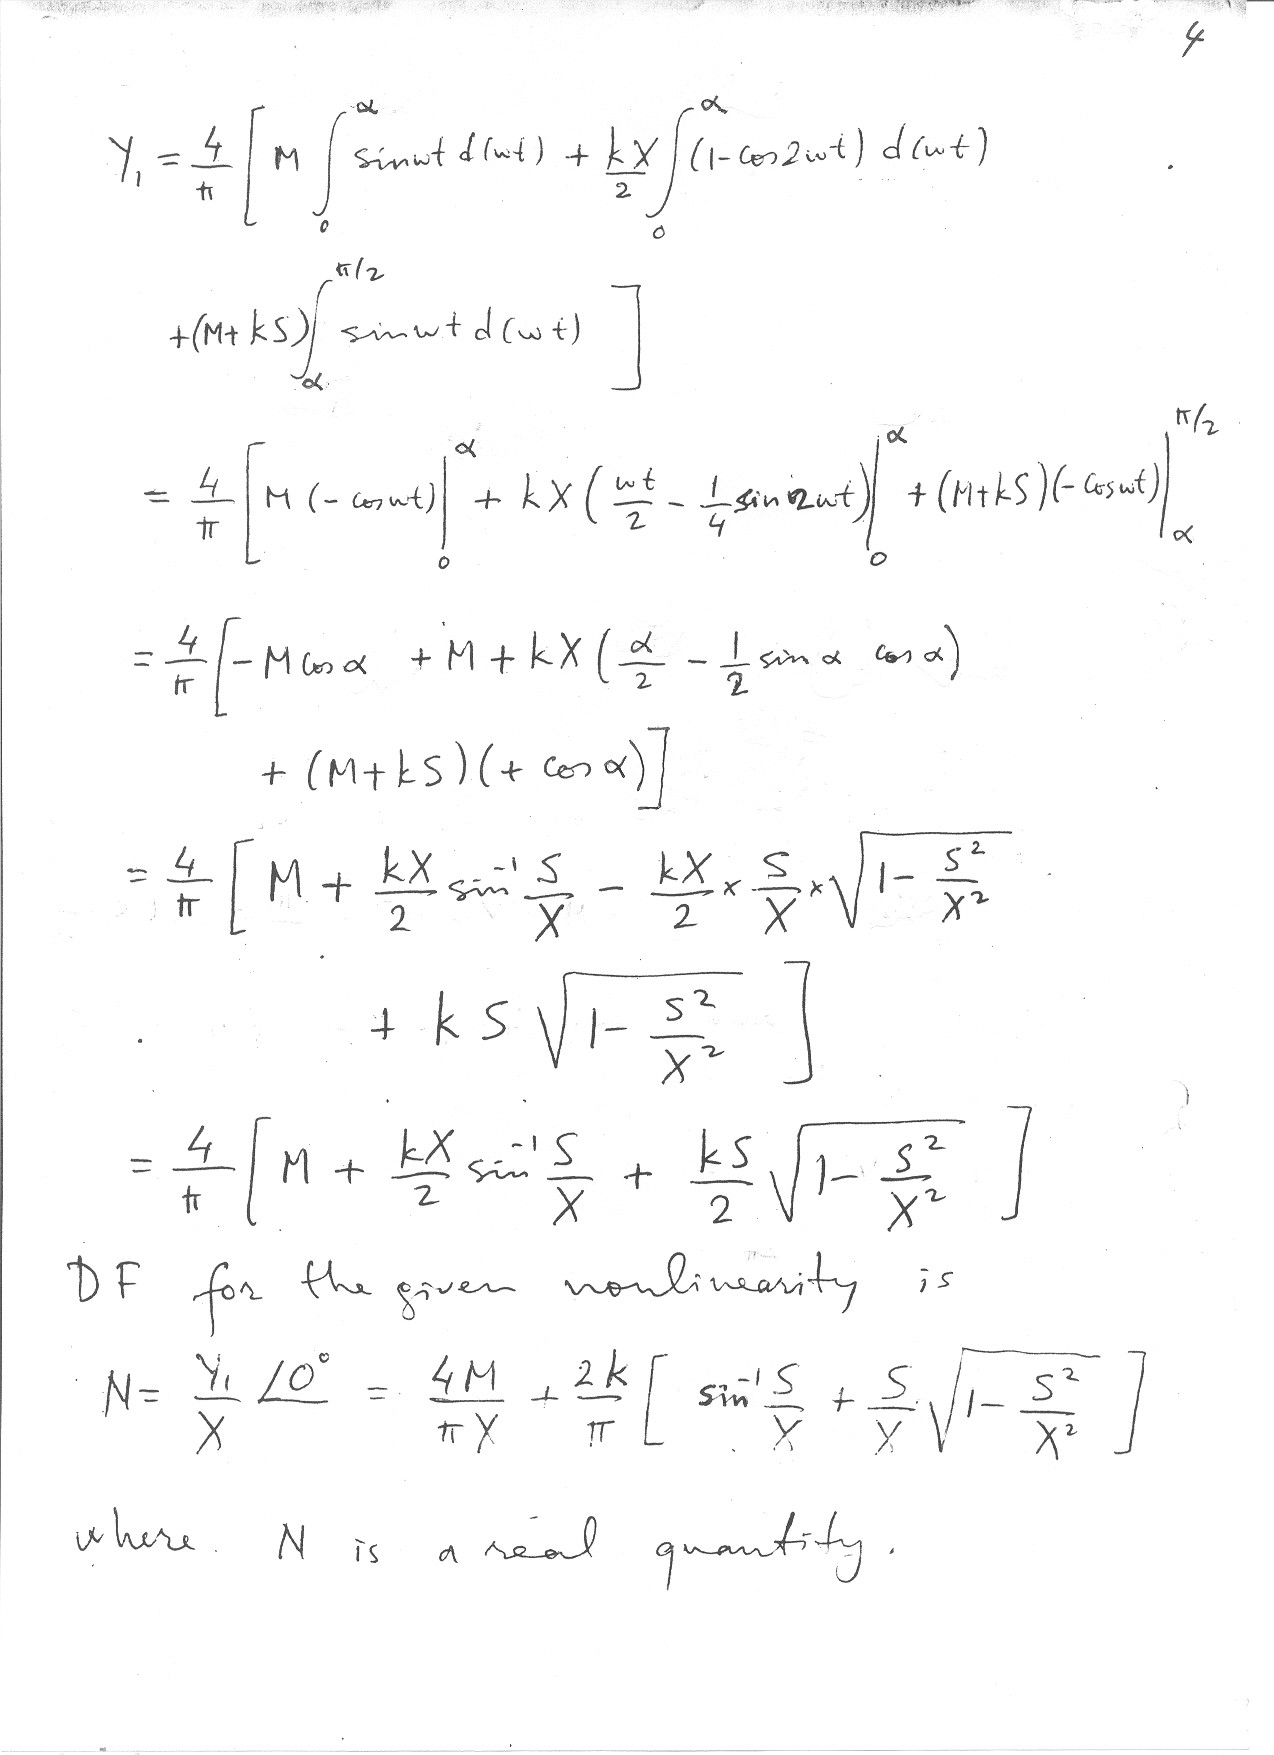 4
Y₁ = 4/π [ M ∫₀^α sinωt d(ωt) + kX/2 ∫₀^α (1-cos2ωt) d(ωt)
+(M+kS) ∫_α^{π/2} sinωt d(ωt) ]
= 4/π [ M (-cosωt)|₀^α + kX ( ωt/2 - 1/4 sin2ωt)|₀^α + (M+kS)(-cosωt)|_α^{π/2}
= 4/π [ -M cosα + M + kX ( α/2 - 1/2 sinα cosα)
+ (M+kS)(+ cosα)]
= 4/π [ M + kX/2 sin⁻¹ S/X - kX/2 × S/X × √(1- S²/X²)
+ kS √(1- S²/X²) ]
= 4/π [ M + kX/2 sin⁻¹ S/X + kS/2 √(1- S²/X²) ]
DF for the given nonlinearity is
N= Y₁/X ∠0° = 4M/πX + 2k/π [ sin⁻¹ S/X + S/X √(1- S²/X²) ]
where N is a real quantity.